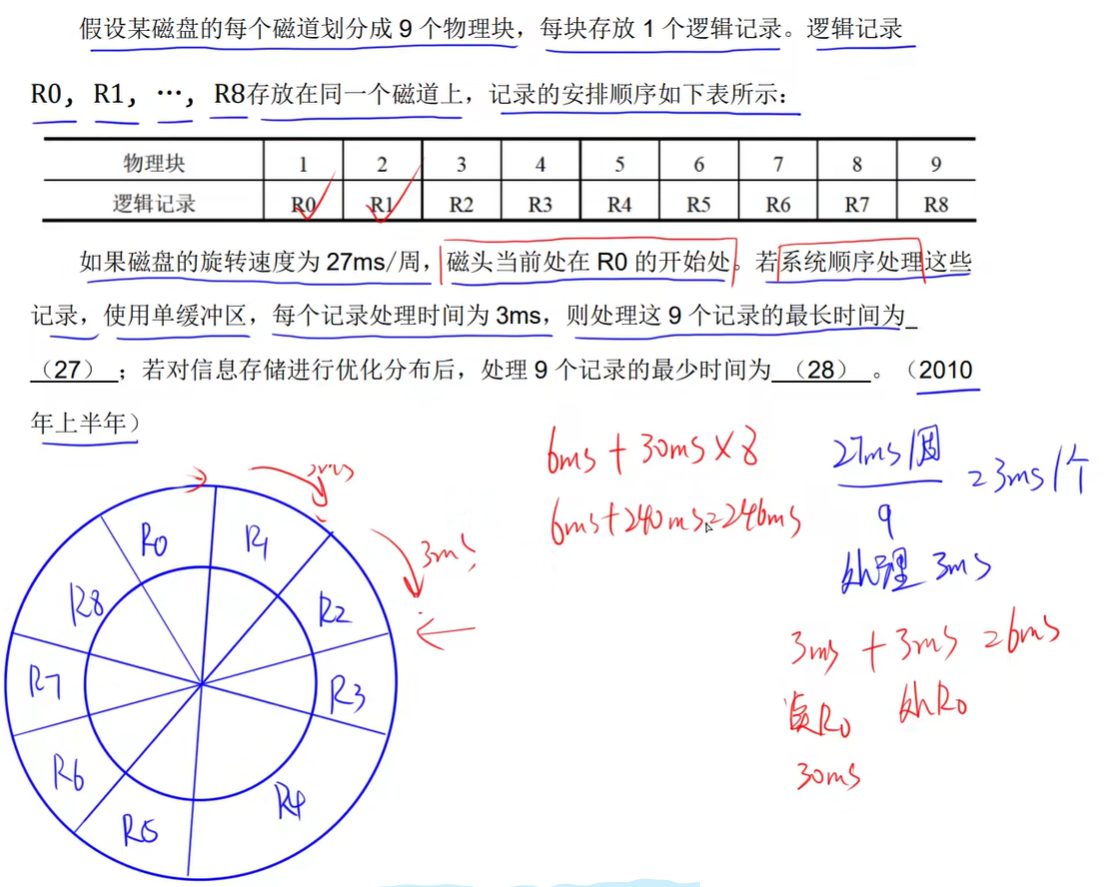 假设某磁盘的每个磁道划分成 9 个物理块，每块存放 1 个逻辑记录。逻辑记录
R0， R1， …， R8存放在同一个磁道上，记录的安排顺序如下表所示：
物理块 1 2 3 4 5 6 7 8 9
逻辑记录 R0 R1 R2 R3 R4 R5 R6 R7 R8
如果磁盘的旋转速度为 27ms/周，磁头当前处在 R0 的开始处。若系统顺序处理这些
记录，使用单缓冲区，每个记录处理时间为 3ms，则处理这 9 个记录的最长时间为
（27） ；若对信息存储进行优化分布后，处理 9 个记录的最少时间为 （28） 。（2010
年上半年）
6ms + 30ms × 8
6ms+240ms=246ms
27ms/周
9
=3ms/个
处理 3ms
3ms + 3ms =6ms
读R0 处R0
30ms
3ms
3ms
R0
R1
R2
R3
R4
R5
R6
R7
R8